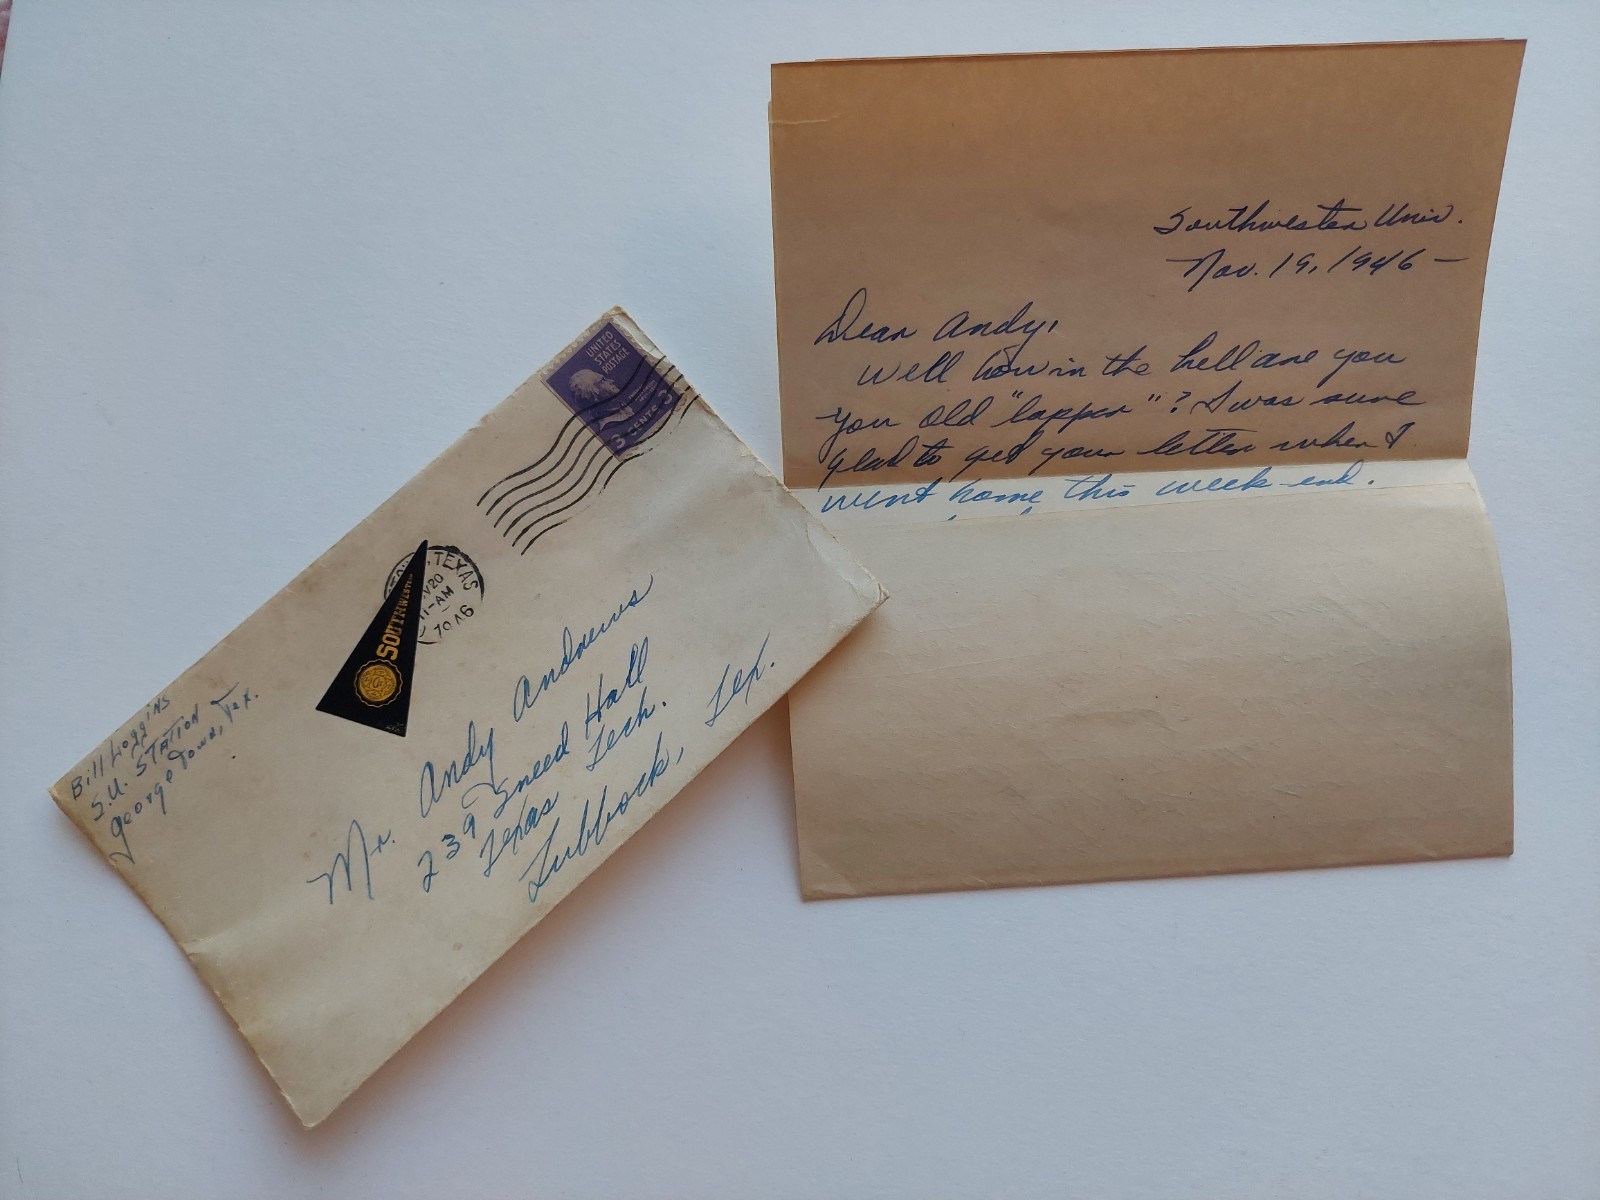 Bill Loggins
S.U. STATION
Georgetown, Tex.
UNITED
STATES
POSTAGE
3 CENTS 3
TEXAS
V20
11-AM
SOUTHWESTE
Mr. Andy Andrews
239 Sneed Hall
Texas Tech.
Lubbock, Tex.
Southwestern Univ.
Nov. 19, 1946 –
Dear Andy,
Well how in the hell are you
you old "lapper"? I was sure
glad to get your letter when I
went home this week-end.